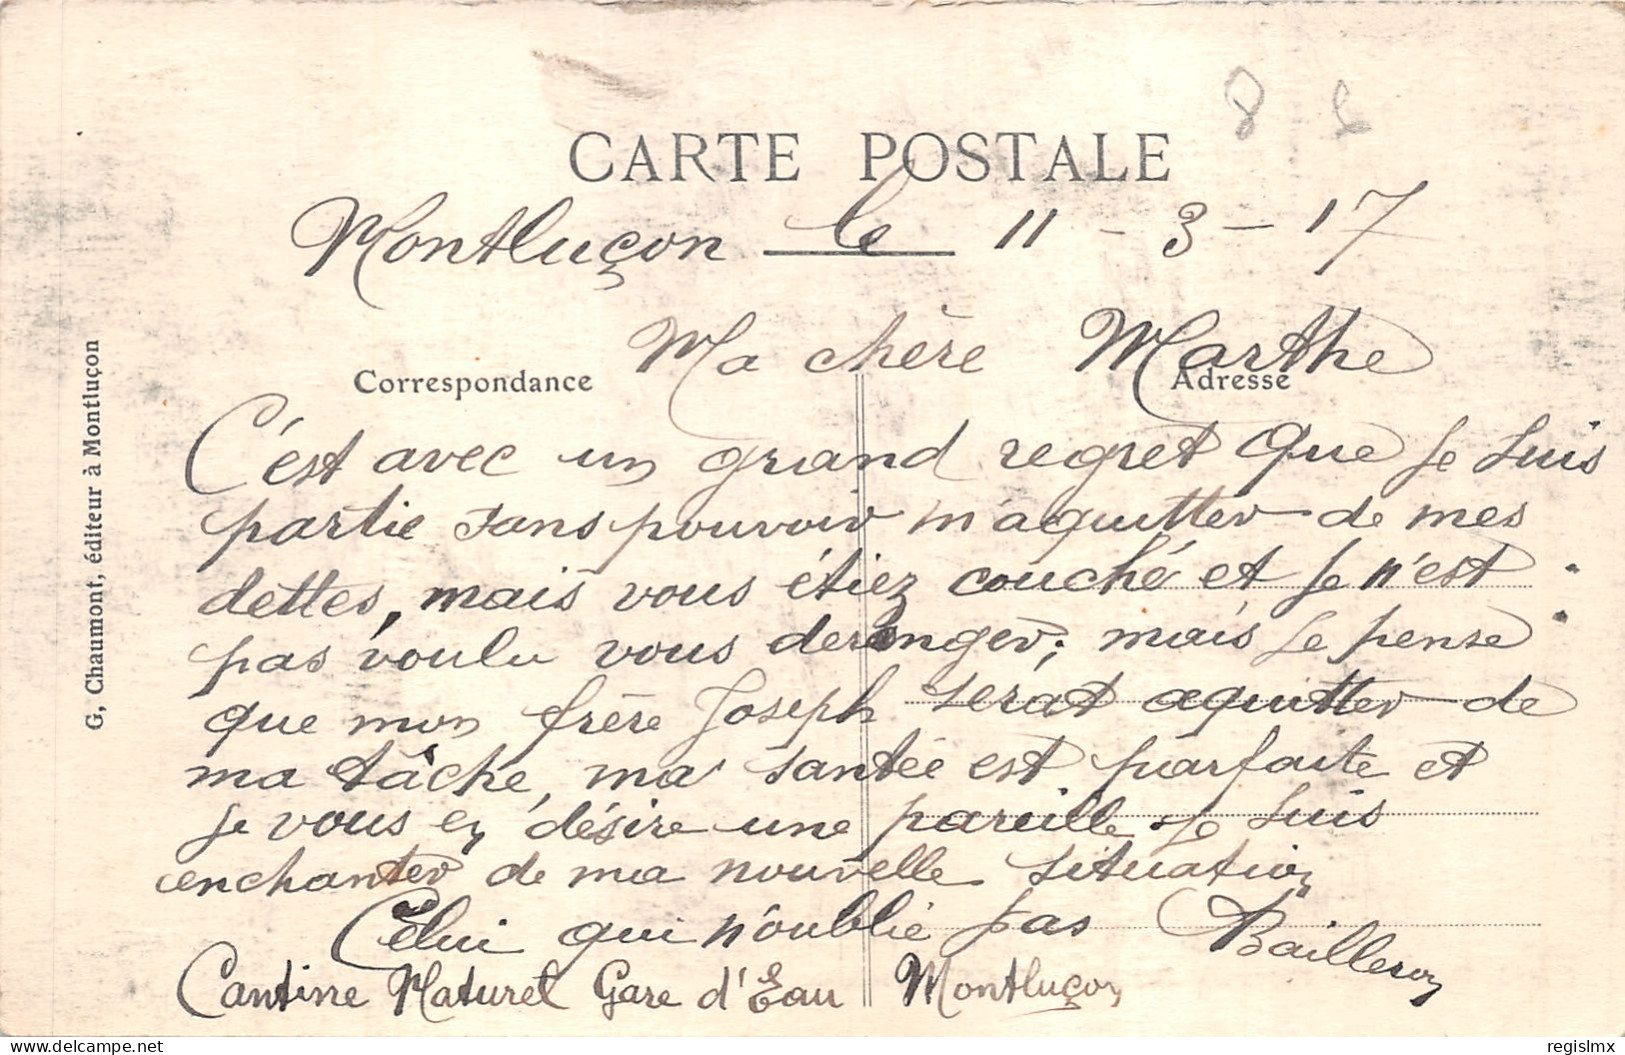 CARTE POSTALE
Montluçon le 11 - 3 - 17
Ma chère Marthe
Correspondance
Adresse
C'est avec un grand regret que je suis
partie sans pouvoir m'aquitter de mes
dettes, mais vous étiez couché et je n'est
pas voulu vous deranger; mais je pense
que mon frère Joseph serat aquitter de
ma tâche, ma santée est parfaite et
je vous en désire une pareille je suis
enchanter de ma nouvelle situation
Celui qui n'oublie pas Bailleron
Cantine Naturel Gare d'Eau Montluçon
G. Chaumont, éditeur à Montluçon
www.delcampe.net
regislmx